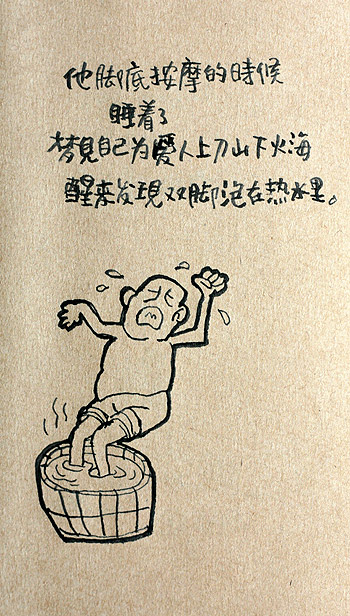 他脚底按摩的時候
睡着了
梦見自己为愛人上刀山下火海
醒来发現双脚泡在热水里。